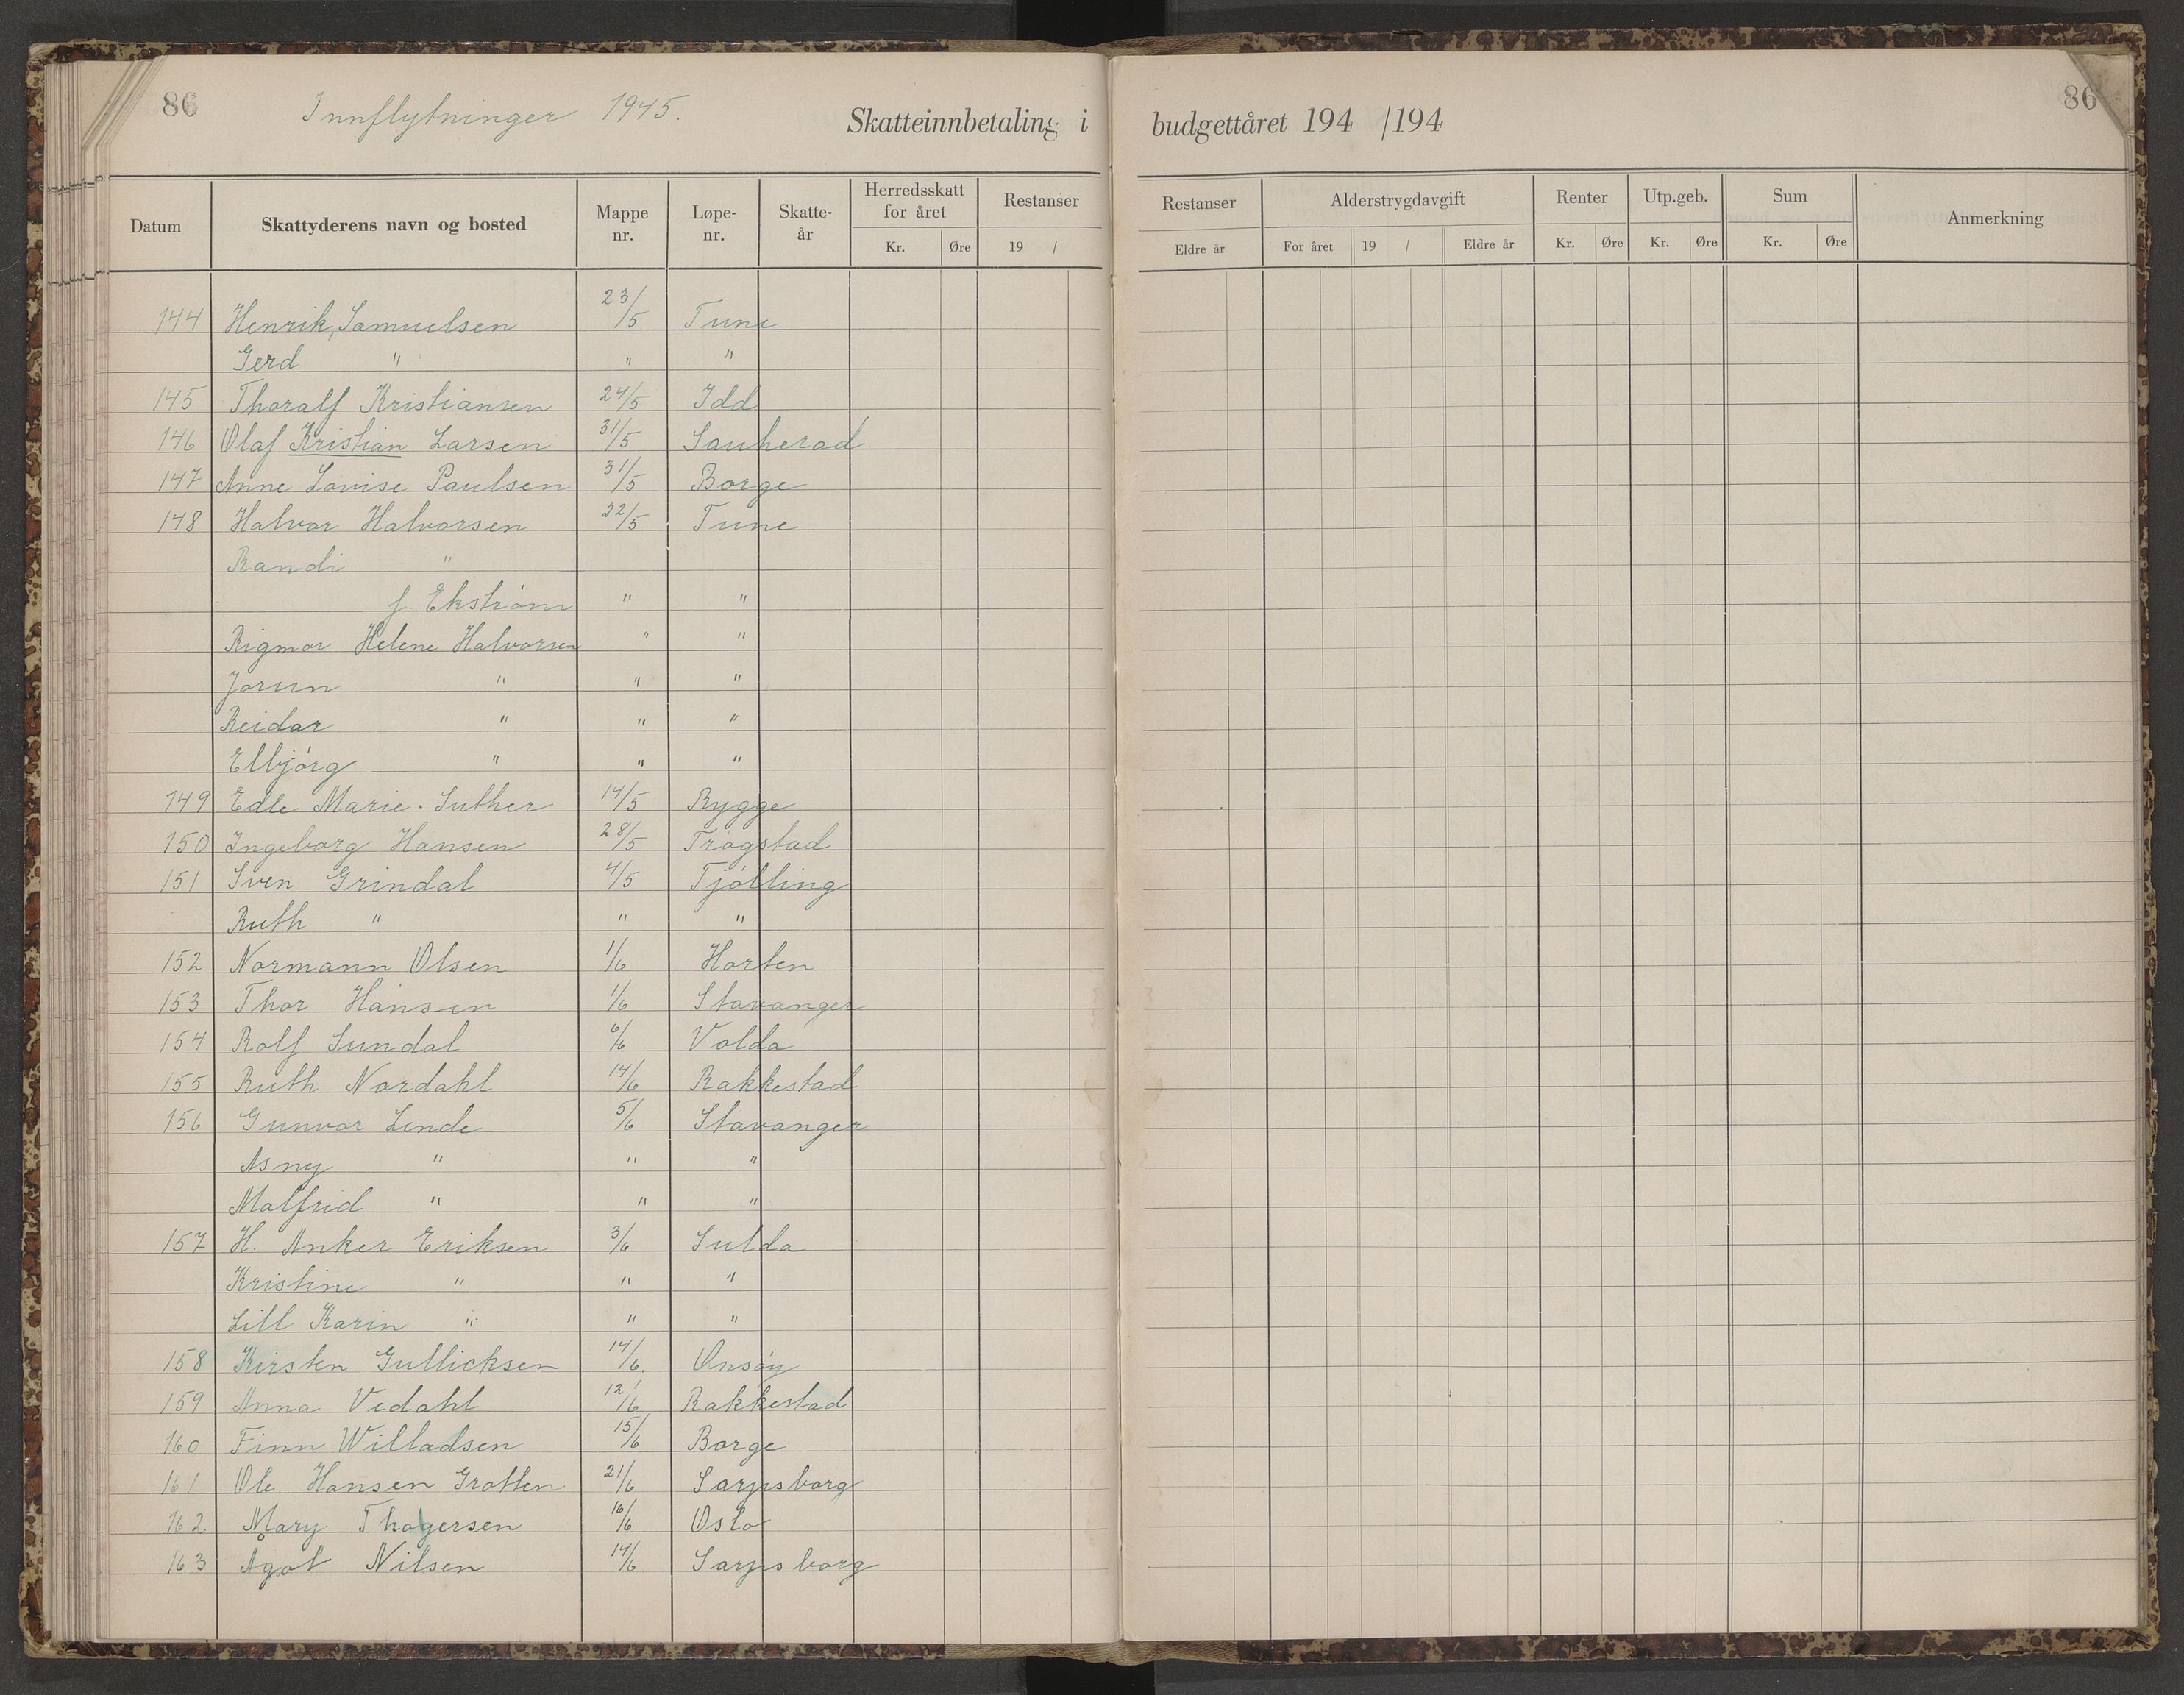 86 Innflytninger 1945. Skatteinnbetaling i budgettåret 194 /194 86
Datum Skattyderens navn og bosted Mappe nr. Løpe-nr. Skatte-år Herredsskatt for året Kr. Øre Restanser 19 / Restanser Eldre år Alderstrygdavgift For året 19 / Eldre år Renter Kr. Øre Utp.geb. Kr. Øre Sum Kr. Øre Anmerkning
144 Henrik, Samuelsen 23/5 Tune
Gerd " " "
145 Thoralf Kristiansen 24/5 Idd
146 Olaf Kristian Larsen 31/5 Sauherad
147 Anne Lovise Paulsen 31/5 Borge
148 Halvor Halvorsen 22/5 Tune
Randi "
f. Ekström " "
Rigmor Helene Halvorsen " "
Jorun " " "
Reidar " " "
Elbjörg " " "
149 Edle Marie. Suther 14/5 Rygge
150 Ingeborg Hansen 28/5 Trögstad
151 Sven Grindal 4/5 Tjölling
Ruth " " "
152 Normann Olsen 1/6 Horten
153 Thor Hansen 1/6 Stavanger
154 Rolf Sundal 6/6 Volda
155 Ruth Nordahl 14/6 Rakkestad
156 Gunvor Lende 5/6 Stavanger
Asny " " "
Malfrid " " "
157 H. Anker Eriksen 3/6 Sulda
Kristine " " "
Lill Karin " " "
158 Kirsten Gullicksen 14/6. Onsöy
159 Anna Vedahl 12/6 Rakkestad
160 Finn Willadsen 15/6 Borge
161 Ole Hansen Grotten 21/6 Sarpsborg
162 Mary Thogersen 16/6 Oslo
163 Ågot Nilsen 14/6 Sarpsborg